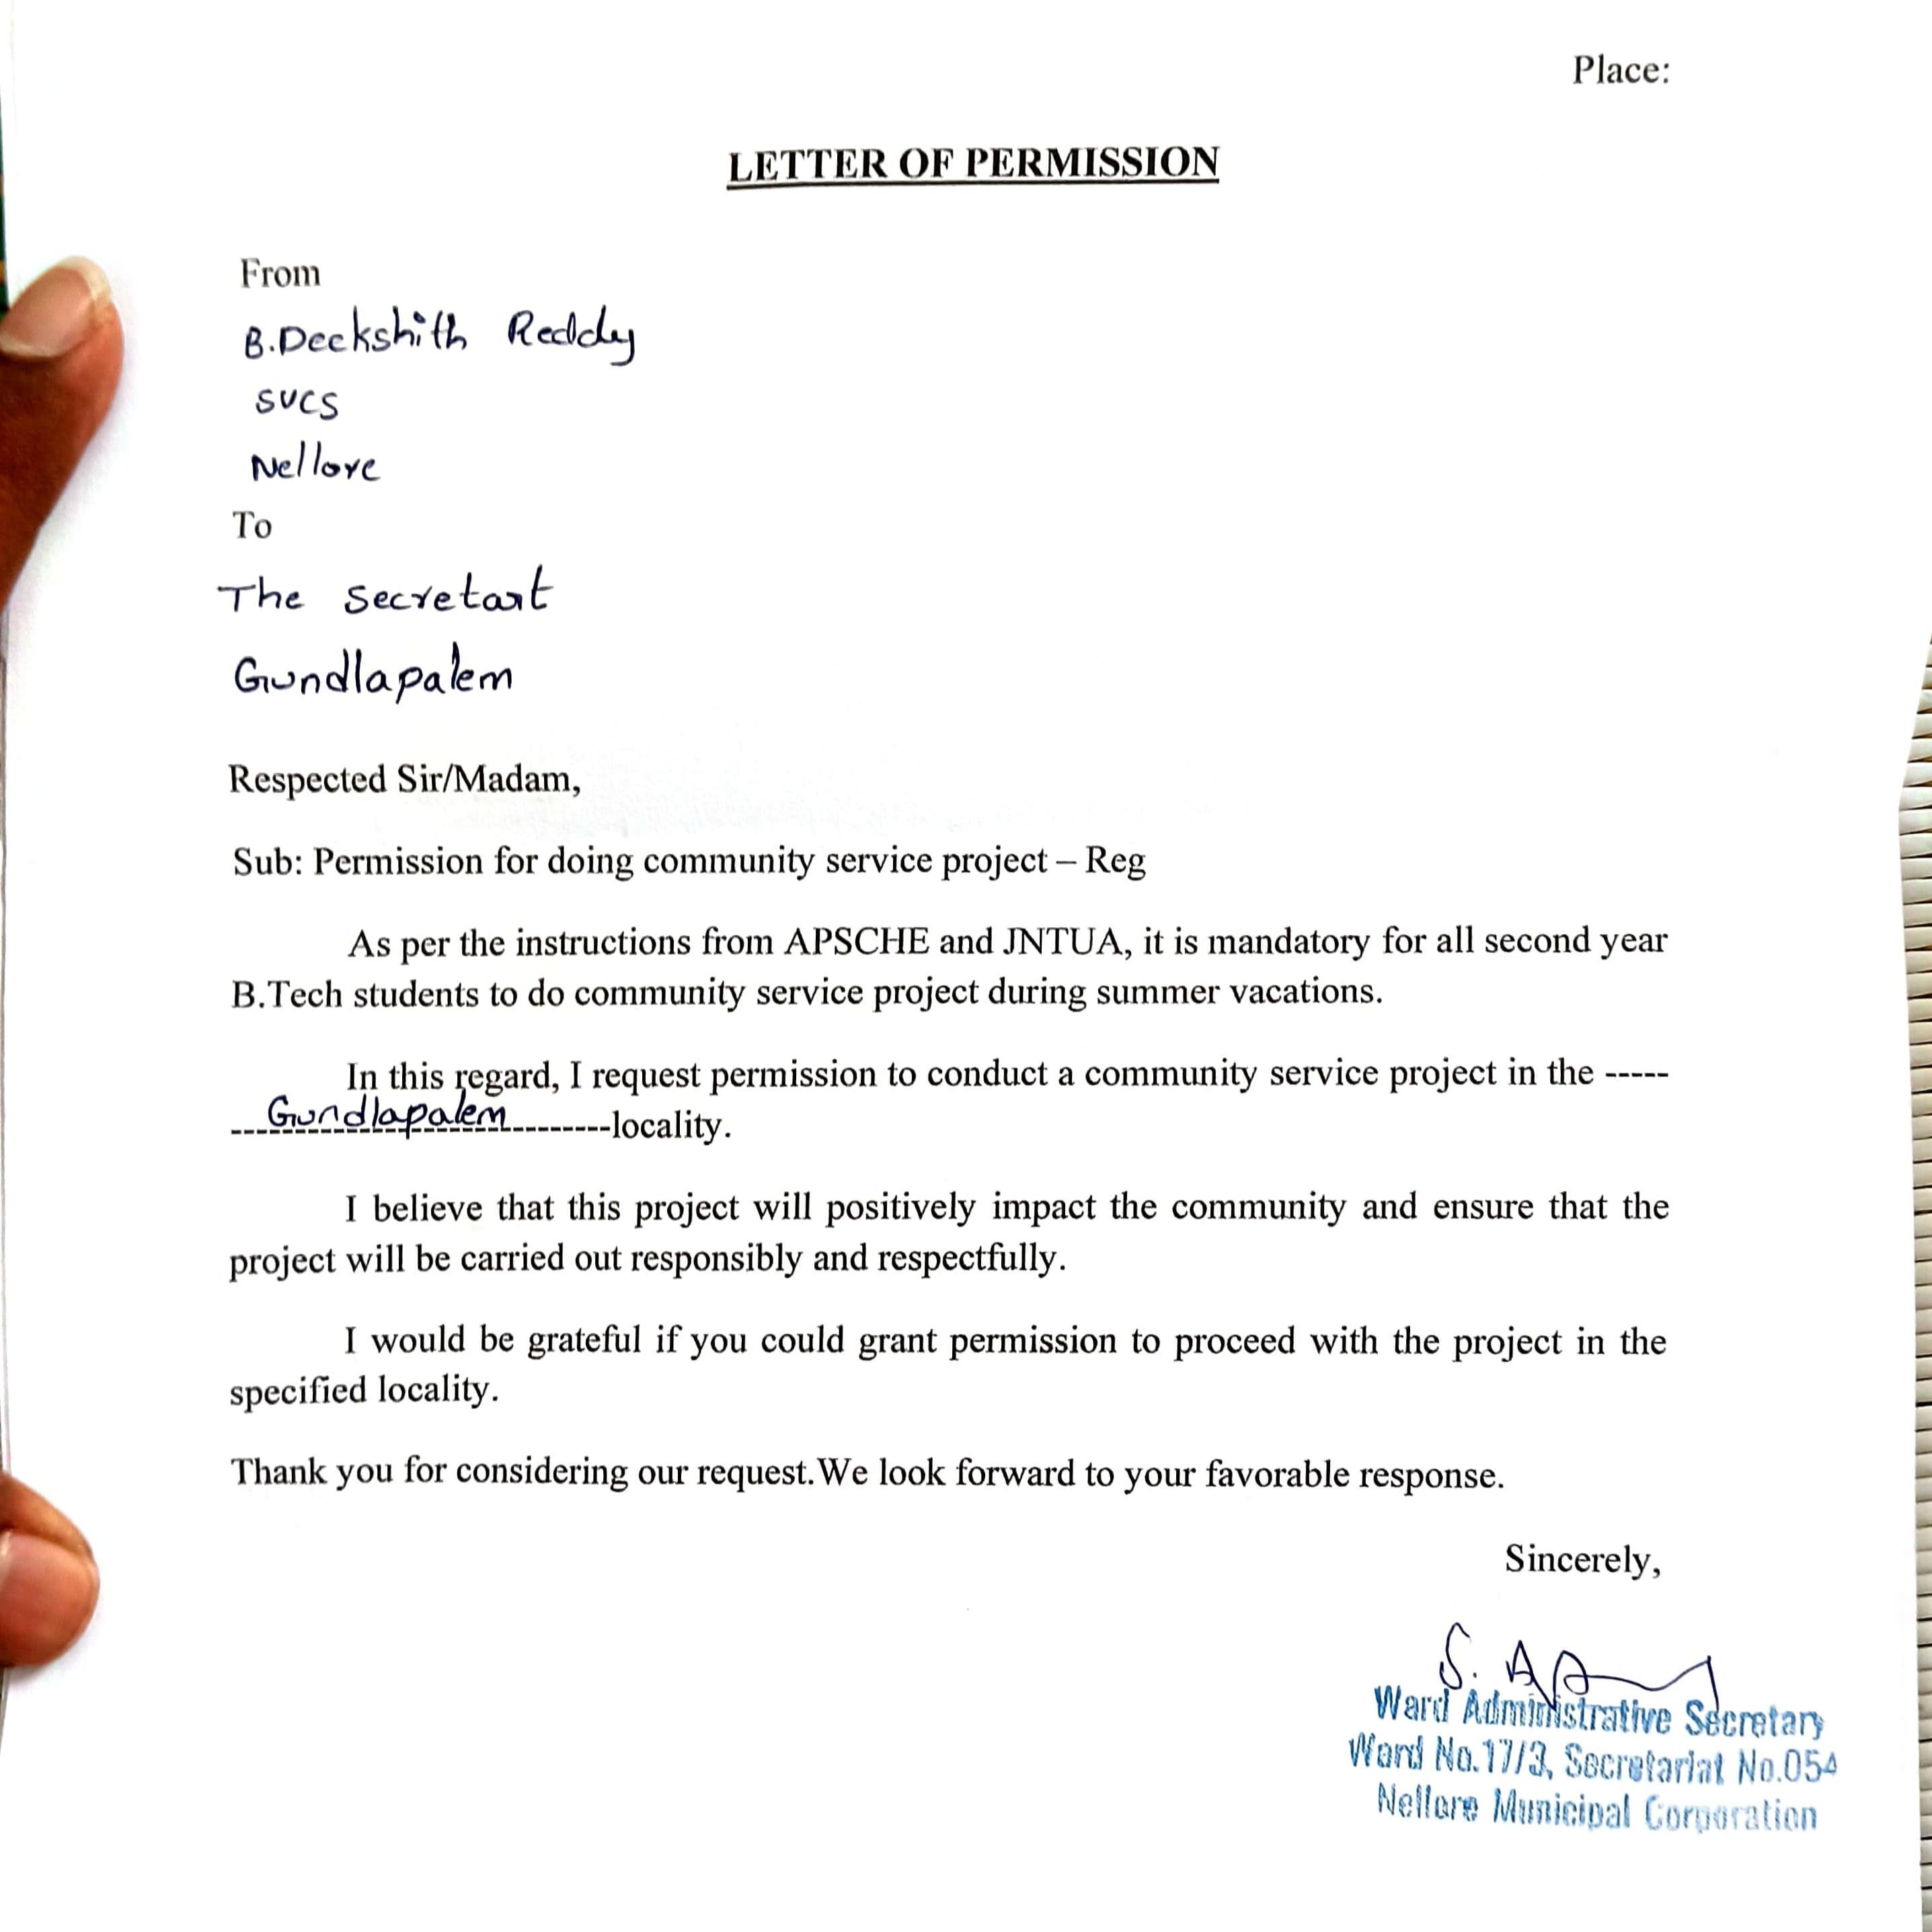 Place:
LETTER OF PERMISSION
From
B.Deekshith Reddy
SVCS
Nellore
To
The secretart
Gundlapalem
Respected Sir/Madam,
Sub: Permission for doing community service project – Reg
As per the instructions from APSCHE and JNTUA, it is mandatory for all second year
B.Tech students to do community service project during summer vacations.
In this regard, I request permission to conduct a community service project in the -----
---Gundlapalem--------locality.
I believe that this project will positively impact the community and ensure that the
project will be carried out responsibly and respectfully.
I would be grateful if you could grant permission to proceed with the project in the
specified locality.
Thank you for considering our request.We look forward to your favorable response.
Sincerely,
Ward Administrative Secretary
Ward No.17/3, Secretariat No.054
Nellore Municipal Corporation